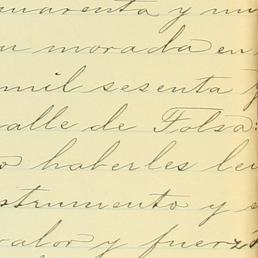 uarenta y nu
u morada en
mil sesenta y
alle de Tolsa:
o haberles le
strumento y s
valor y fuerz